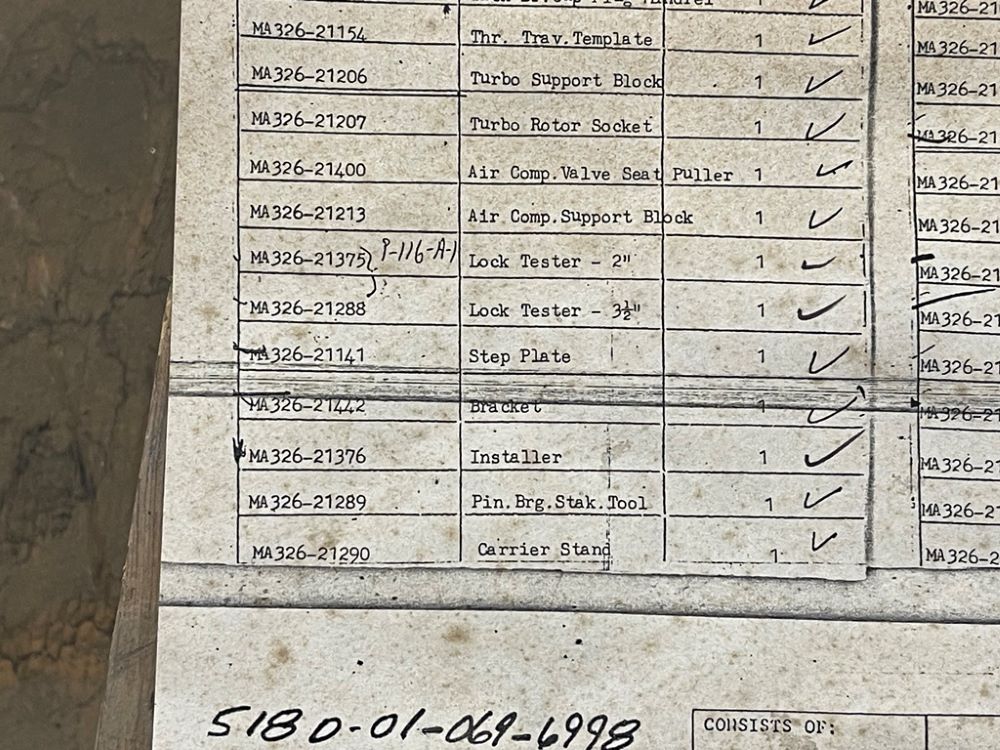 MA326-21154 Thr. Trav.Template 1 ✓
MA326-21206 Turbo Support Block 1 ✓
MA326-21207 Turbo Rotor Socket 1 ✓
MA326-21400 Air Comp.Valve Seat Puller 1 ✓
MA326-21213 Air Comp.Support Block 1 ✓
MA326-21375 P-116-A-1 Lock Tester - 2" 1 ✓
MA326-21288 Lock Tester - 3½" 1 ✓
MA326-21141 Step Plate 1 ✓
MA326-21442 Bracket 1 ✓
MA326-21376 Installer 1 ✓
MA326-21289 Pin.Brg.Stak.Tool 1 ✓
MA326-21290 Carrier Stand 1 ✓
MA326-21
MA326-21
MA326-21
MA326-21
MA326-21
MA326-21
MA326-21
MA326-21
MA326-21
MA326-21
MA326-21
MA326-2
MA326-2
5180-01-069-6998
CONSISTS OF: